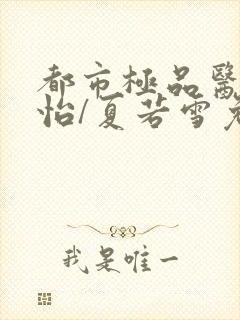 都市極品醫
怡/夏若雪
我是唯一